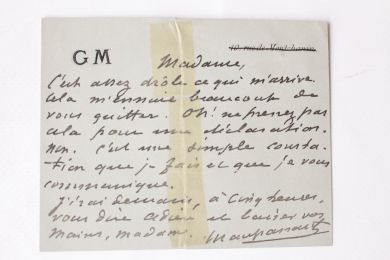 GM
10, rue de Montchanin
Madame,
C'est assez drôle ce qui m'arrive
cela m'ennuie beaucoup de
vous quitter. Oh! ne prenez pas
cela pour une déclaration.
Non. C'est une simple consta-
tion que je fais et que je vous
communique.
J'irai demain, à cinq heures,
vous dire adieu et baiser vos
mains, madame. Maupassant